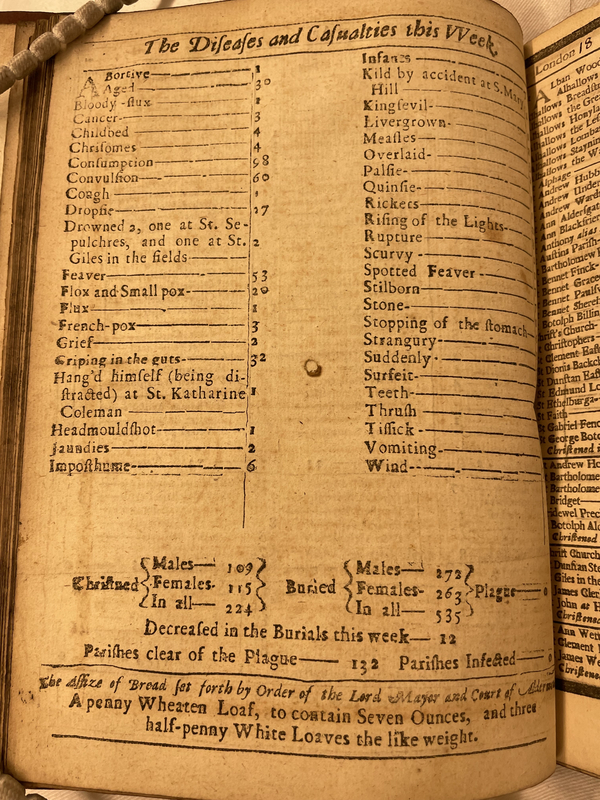 The Diſeaſes and Caſualties this Week.
ABortive — 1
Aged — 30
Bloody-flux — 1
Cancer — 3
Childbed — 4
Chriſomes — 4
Conſumption — 98
Convulſion — 60
Cough — 1
Dropſie — 27
Drowned 2, one at St. Se-
pulchres, and one at St. 2
Giles in the fields —
Feaver — 53
Flox and Small pox — 20
Flux — 1
French-pox — 3
Grief — 2
Griping in the guts — 32
Hang'd himſelf (being di-
ſtracted) at St. Katharine 1
Coleman —
Headmouldſhot — 1
Jaundies — 2
Impoſthume — 6
Infants —
Kild by accident at S. Mary
Hill —
Kingſevil —
Livergrown —
Meaſles —
Overlaid —
Palſie —
Quinſie —
Rickets —
Riſing of the Lights —
Rupture —
Scurvy —
Spotted Feaver —
Stilborn —
Stone —
Stopping of the ſtomach —
Strangury —
Suddenly —
Surfeit —
Teeth —
Thruſh —
Tiſſick —
Vomiting —
Wind —
Chriſtned { Males — 109 Females — 115 In all — 224 }
Buried { Males — 272 Females — 263 In all — 535 } Plague — 0
Decreaſed in the Burials this week — 12
Pariſhes clear of the Plague — 132 Pariſhes Infected — 0
The Aſſize of Bread ſet forth by Order of the Lord Mayor and Court of
A penny Wheaten Loaf, to contain Seven Ounces, and three
half-penny White Loaves the like weight.
London 18
Alban Wood
Alhallows
allows Breadſt
allows the Gre
allows Honyla
allows the Leſ
allows Lombar
allows Stainin
allows the W
Alphage
Andrew Hubb
Andrew Under
Andrew Ward
Ann Alderſgat
Ann Blackfrie
Anthony alias
Auſtins Pariſh
Bartholomew
Bennet Finck
Bennet Grace
Bennet Paulſ
Bennet Sherch
Botolph Billin
Chriſt's Church
Chriſtophers
Clement Eaſt
Dionis Backch
Dunſtan Eaſt
Edmund Lo
Ethelburga
Faith
Gabriel Fenc
George Boto
Chriſtned i
Andrew Ho
Bartholome
Bartholome
Bridget
Bridewel Prec
Botolph Ald
Chriſtned
Chriſt Church
Dunſtan Ste
Giles in the
James Cler
John at H
Chriſtned
Ann Weſt
Clement
James We
Chriſtned